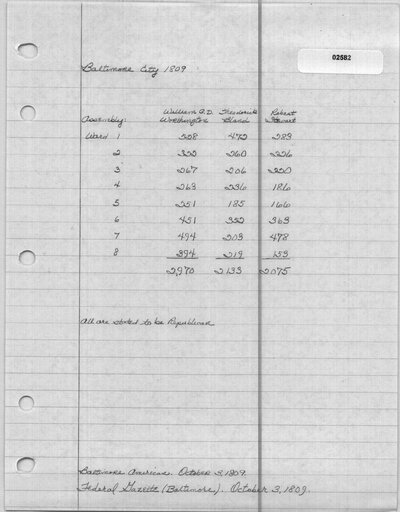 02582
Baltimore City 1809
William G.D. Frederick Robert
Assembly: Worthington Bland Stewart
Ward 1 528 472 283
2 322 260 226
3 267 206 220
4 263 236 186
5 251 185 166
6 451 352 363
7 494 203 478
8 394 219 153
2,970 2133 2075
All are stated to be Republican
Baltimore American. October 3, 1809.
Federal Gazette (Baltimore). October 3, 1809.